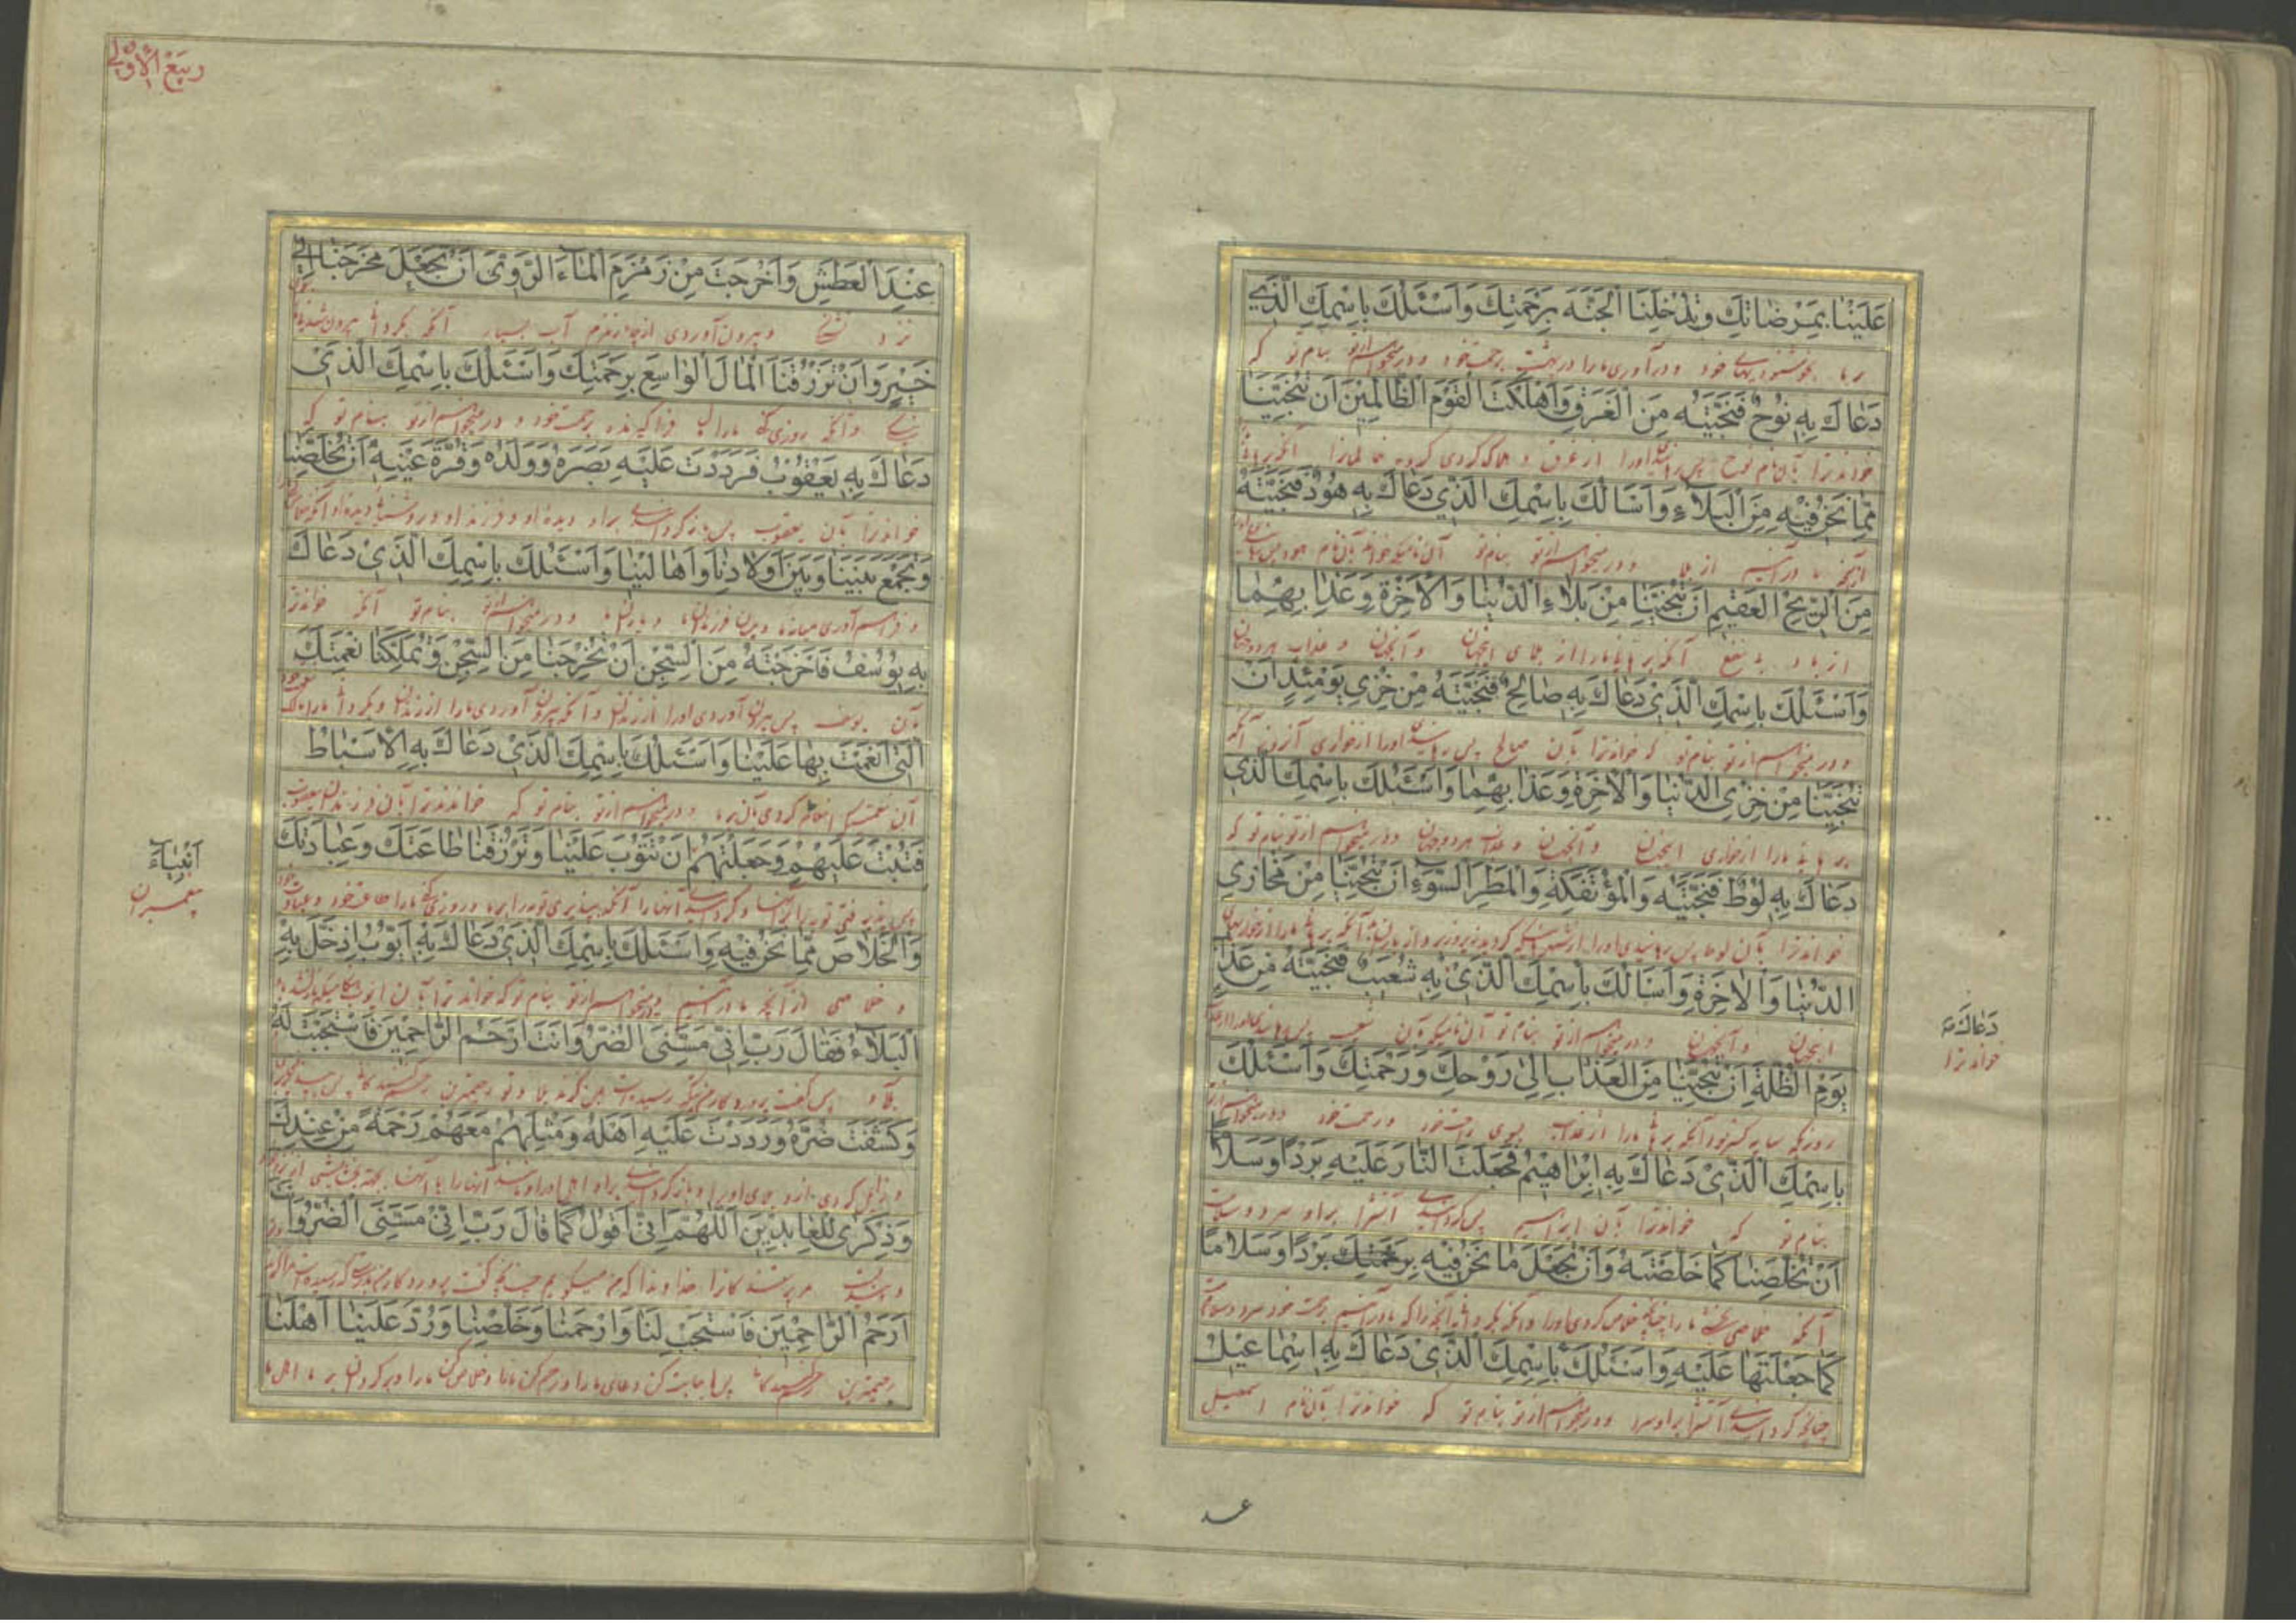 عَلَيْنَا بِمَرْضَاتِكَ وَتُدْخِلَنَا الْجَنَّةَ بِرَحْمَتِكَ وَاَسْئَلُكَ بِاسْمِكَ الَّذِي
بر ما بخوشنودیهای خود و درآوری ما را در بهشت برحمت خود و درمیخواهم از تو بنام تو که
دَعَاكَ بِهِ نُوحٌ فَنَجَّيْتَهُ مِنَ الْغَرَقِ وَاَهْلَكْتَ الْقَوْمَ الظَّالِمِينَ اَنْ تُنْجِيَنَا
خواند ترا بآن نام نوح پس رهانیدی اورا از غرق و هلاک کردی گروه ظالمانرا آنکه برهانی
مِمَّا نَحْنُ فِيْهِ مِنَ الْبَلَاءِ وَاَسْاَلُكَ بِاسْمِكَ الَّذِي دَعَاكَ بِهِ هُودٌ فَنَجَّيْتَهُ
ازآنچه ما درآنیم از بلا و درمیخواهم از تو بنام تو آن نامیکه خواند بآن نام هود پس
مِنَ الرِّيْحِ الْعَقِيْمِ اَنْ تُنْجِيَنَا مِنْ بَلَاءِ الدُّنْيَا وَالْاٰخِرَةِ وَعَذَابِهِمَا
از باد بی نفع آنکه برهانی ما را از بلای اینجهان و آنجهان و عذاب هردوجهان
وَاَسْئَلُكَ بِاسْمِكَ الَّذِي دَعَاكَ بِهِ صَالِحٌ فَنَجَّيْتَهُ مِنْ خِزْيِ يَوْمَئِذٍ اَنْ
و درمیخواهم از تو بنام تو که خواند ترا بآن صالح پس رهانیدی اورا از خواری آنروز آنکه
تُنْجِيَنَا مِنْ خِزْيِ الدُّنْيَا وَالْاٰخِرَةِ وَعَذَابِهِمَا وَاَسْئَلُكَ بِاسْمِكَ الَّذِي
ما را از خواری اینجهان و آنجهان و عذاب هردوجهان و درمیخواهم از تو بنام تو که
دَعَاكَ بِهِ لُوْطٌ فَنَجَّيْتَهُ وَالْمُؤْتَفِكَةِ وَالْمَطَرِ السَّوْءِ اَنْ تُنْجِيَنَا مِنْ مَخَازِي
خواند ترا بآن لوط پس رهانیدی اورا
الدُّنْيَا وَالْاٰخِرَةِ وَاَسْاَلُكَ بِاسْمِكَ الَّذِيْ بِهِ شُعَيْبٌ فَنَجَّيْتَهُ مِنْ عَذَابِ
اینجهان و آنجهان و درمیخواهم از تو بنام تو آن نامیکه بآن شعیب پس
يَوْمِ الظُّلَّةِ اَنْ تُنْجِيَنَا مِنَ الْعَذَابِ اِلَى رَوْحِكَ وَرَحْمَتِكَ وَاَسْئَلُكَ
روزیکه سایه آنکه برهانی ما را از عذاب بسوی راحت خود و رحمت خود و درمیخواهم از تو
بِاسْمِكَ الَّذِيْ دَعَاكَ بِهِ اِبْرَاهِيْمُ فَجَعَلْتَ النَّارَ عَلَيْهِ بَرْدًا وَسَلَامًا
بنام تو که خواند ترا بآن ابراهیم پس گردانیدی آتش را براو سرد و سلامت
اَنْ تُخَلِّصَنَا كَمَا خَلَّصْتَهُ وَاَنْ تَجْعَلَ مَا نَحْنُ فِيْهِ بِرَحْمَتِكَ بَرْدًا وَسَلَامًا
آنکه خلاصی ما را چنانچه خلاص کردی اورا و آنکه بگردانی آنچه را که ما درآنیم برحمت خود سرد و سلامت
كَمَا جَعَلْتَهَا عَلَيْهِ وَاَسْئَلُكَ بِاسْمِكَ الَّذِيْ دَعَاكَ بِهِ اِسْمَاعِيْلُ
چنانچه گردانیدی آتش را براو سرد و درمیخواهم از تو بنام تو که خواند ترا بآن نام اسمعیل
دَعَاكَ بِهِ
خواند ترا
عند
رَبِيْعُ الْاَوَّل
عِنْدَ الْعَطَشِ وَاَخْرَجْتَ مِنْ زَمْزَمِ الْمَاءَ الرَّوِيَّ اَنْ تَجْعَلَ مَخْرَجَنَا اِلَى
نزد تشنگی و بیرون آوردی از چاه زمزم آب بسیار آنکه بگردانی بیرون شدن ما
خَيْرٍ وَاَنْ تَرْزُقَنَا الْمَالَ الْوَاسِعَ بِرَحْمَتِكَ وَاَسْئَلُكَ بِاسْمِكَ الَّذِيْ
و آنکه روزی کنی ما را مال برحمت خود و درمیخواهم از تو بنام تو که
دَعَاكَ بِهِ يَعْقُوْبُ فَرَدَدْتَ عَلَيْهِ بَصَرَهُ وَوَلَدَهُ وَقُرَّةَ عَيْنِهِ اَنْ تُخَلِّصَنَا
خواند ترا بآن یعقوب پس بازگردانیدی براو دیده او و فرزند او و روشنی دیده او آنکه
وَتَجْمَعَ بَيْنَنَا وَبَيْنَ اَوْلَادِنَا وَاَهَالِيْنَا وَاَسْئَلُكَ بِاسْمِكَ الَّذِيْ دَعَاكَ
و فراهم آوری میان ما و میان فرزندان ما و درمیخواهم از تو بنام تو آنکه خواند ترا
بِهِ يُوْسُفُ فَاَخْرَجْتَهُ مِنَ السِّجْنِ اَنْ تُخْرِجَنَا مِنَ السِّجْنِ وَتُمَلِّكَنَا نِعْمَتَكَ
بآن یوسف پس بیرون آوردی اورا از زندان و آنکه بیرون آوردی ما را از زندان و بگردانی ما را مالک
الَّتِيْ اَنْعَمْتَ بِهَا عَلَيْنَا وَاَسْئَلُكَ بِاسْمِكَ الَّذِيْ دَعَاكَ بِهِ الْاَسْبَاطُ
آن نعمتیکه انعام کردی بآن بر ما و درمیخواهم از تو بنام تو که خواندند ترا بآن فرزندان یعقوب
فَتُبْتَ عَلَيْهِمْ وَجَعَلْتَهُمْ اَنْ تَتُوْبَ عَلَيْنَا وَتَرْزُقَنَا طَاعَتَكَ وَعِبَادَتَكَ
آنها را آنکه بپذیری توبه را بر ما و روزی کنی ما را طاعت خود و عبادت خود
وَالْخَلَاصَ مِمَّا نَحْنُ فِيْهِ وَاَسْئَلُكَ بِاسْمِكَ الَّذِيْ دَعَاكَ بِهِ اَيُّوْبُ اِذْ حَلَّ بِهِ
و خلاصی از آنچه ما درآنیم و درمیخواهم از تو بنام تو که خواند ترا بآن ایوب
الْبَلَاءُ فَقَالَ رَبِّ اِنِّيْ مَسَّنِيَ الضُّرُّ وَاَنْتَ اَرْحَمُ الرَّاحِمِيْنَ فَاسْتَجَبْتَ لَهُ
بلا پس گفت پروردگار من و تو رحیمترین
وَكَشَفْتَ ضُرَّهُ وَرَدَدْتَ عَلَيْهِ اَهْلَهُ وَمِثْلَهُمْ مَعَهُمْ رَحْمَةً مِنْ عِنْدِكَ
و زایل کردی ازو بلای اورا و بازگردانیدی براو اهل اورا
وَذِكْرَى لِلْعَابِدِيْنَ اَللّٰهُمَّ اِنِّيْ اَقُوْلُ كَمَا قَالَ رَبِّ اِنِّيْ مَسَّنِيَ الضُّرُّ وَاَنْتَ
خداوندا که من میگویم چنانچه گفت پروردگار من
اَرْحَمُ الرَّاحِمِيْنَ فَاسْتَجِبْ لَنَا وَارْحَمْنَا وَخَلِّصْنَا وَرُدَّ عَلَيْنَا اَهْلَنَا
رحیمترین پس اجابت کن دعای ما را و رحم کن ما را و خلاص کن ما را و برگردان بر ما اهل ما
اَنْبِيَاءَ
پیغمبران